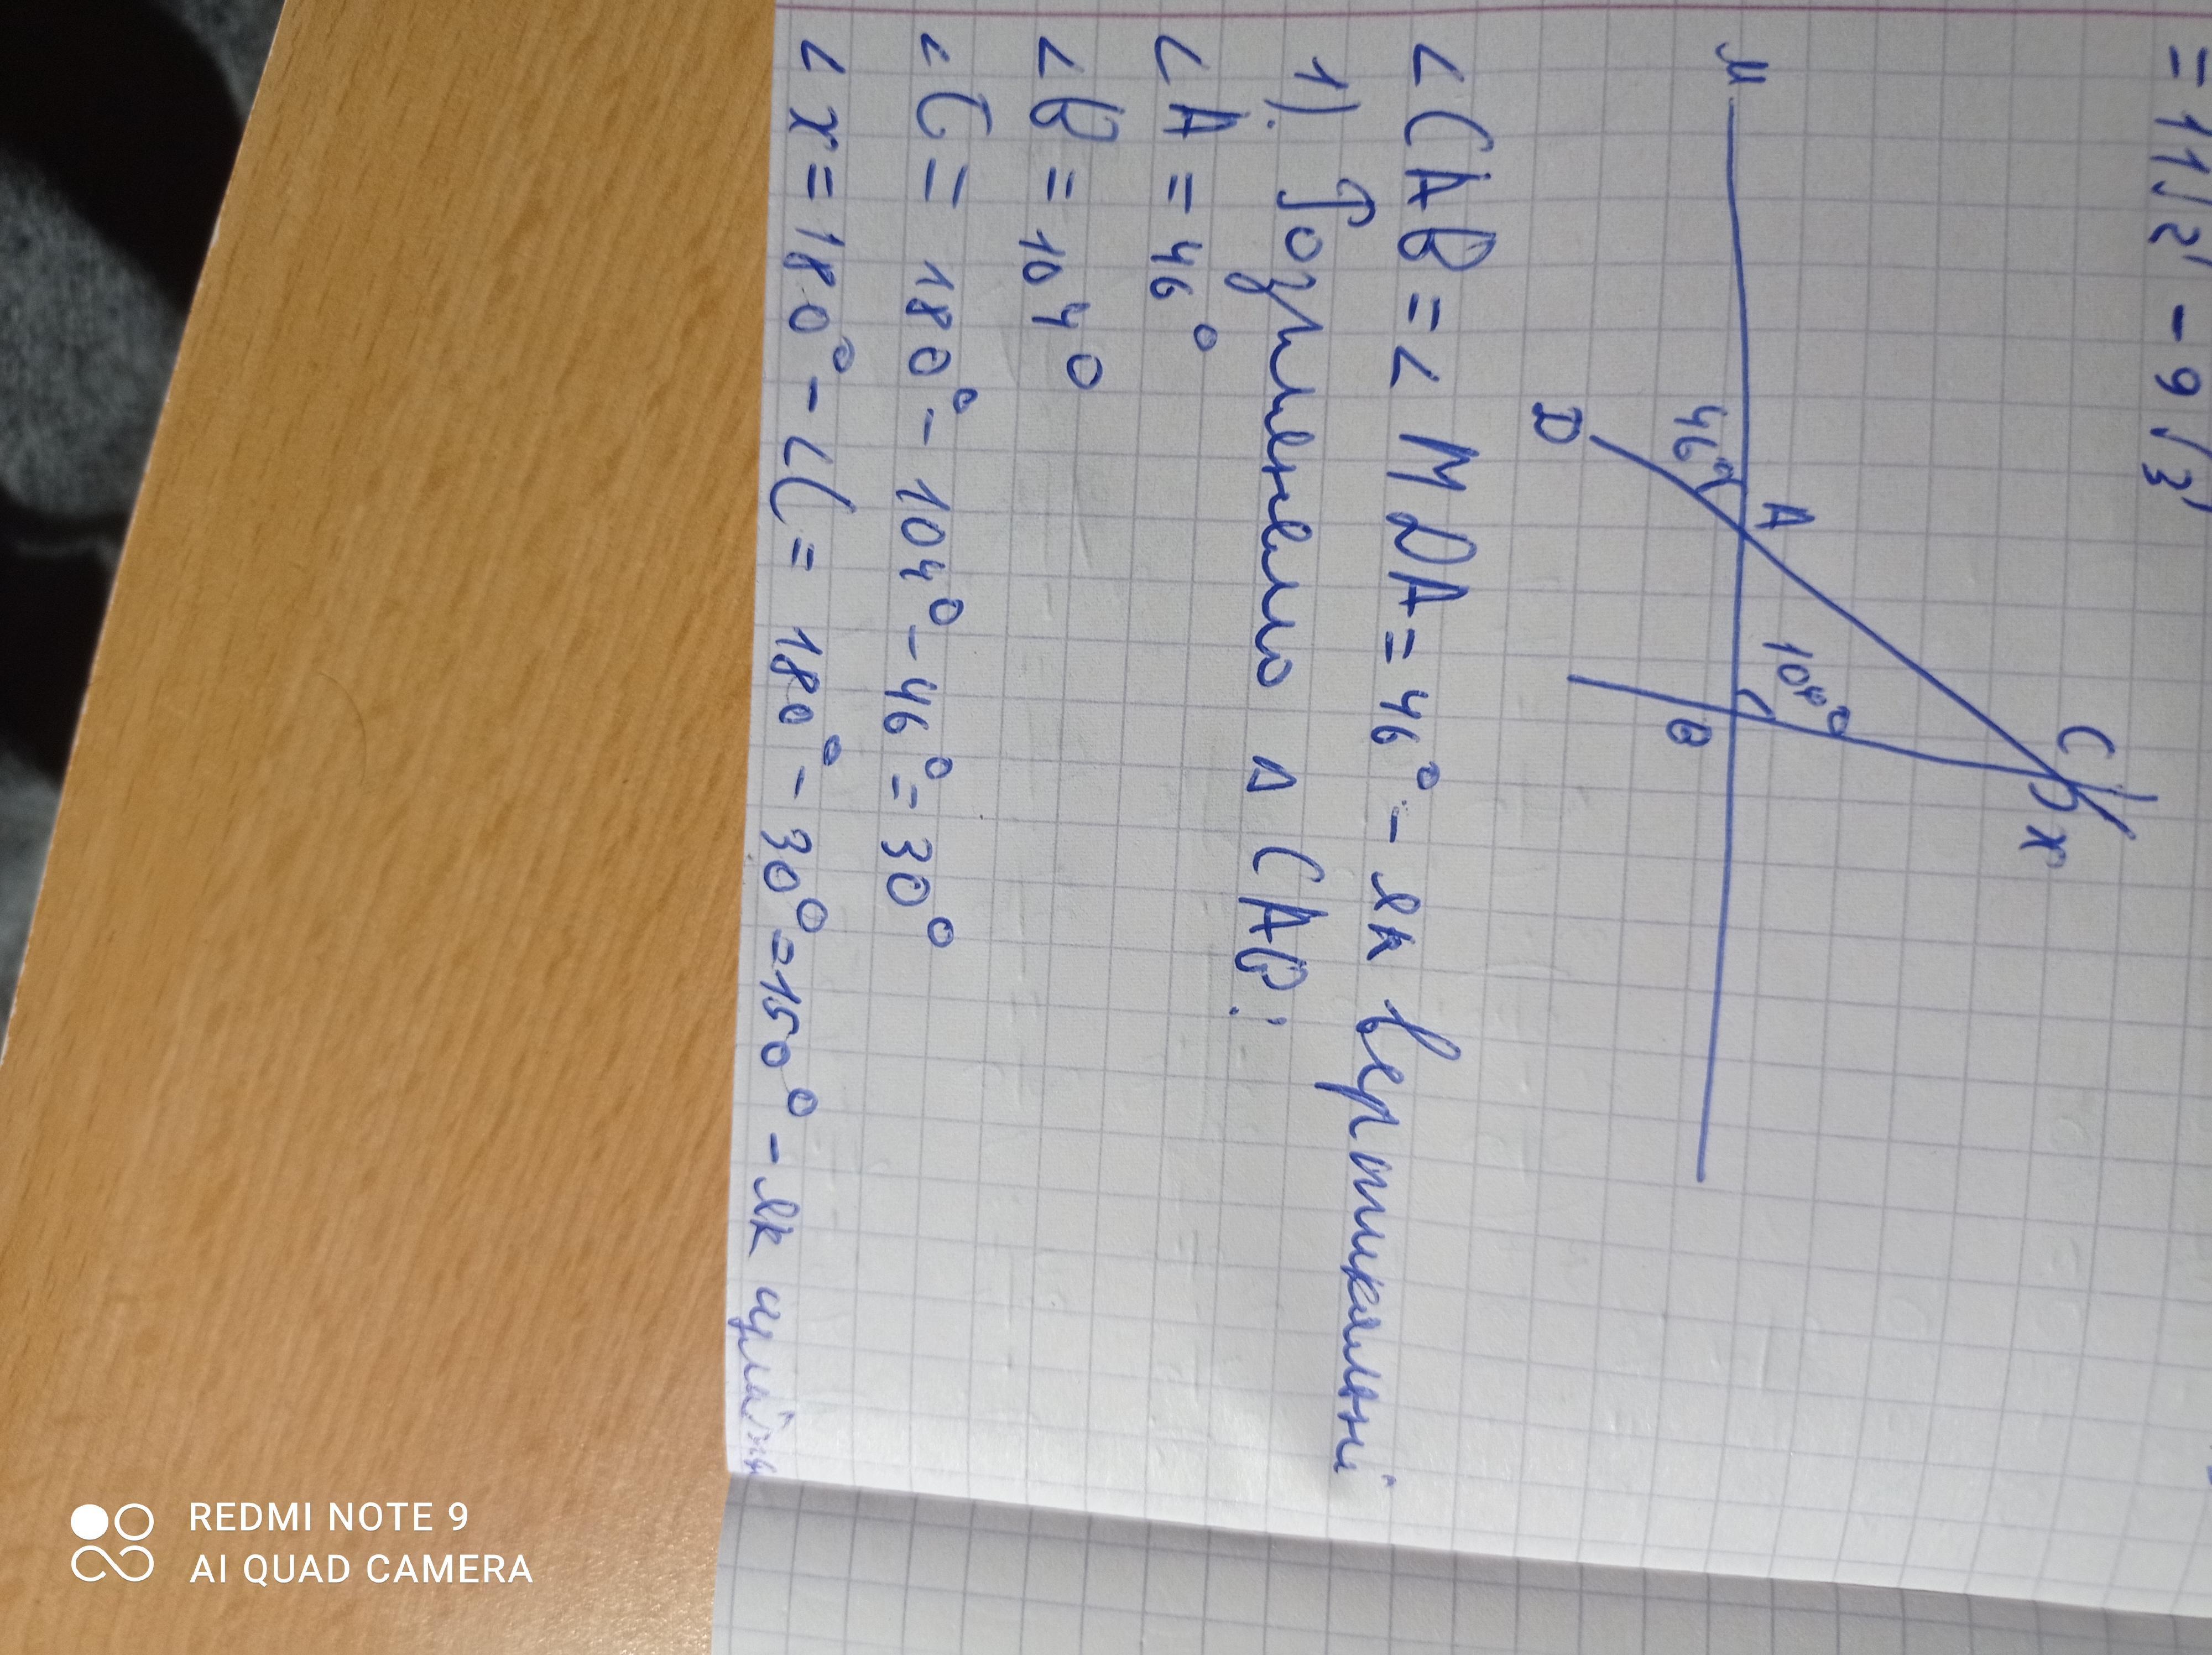 = 11√2 - 9√3
C
x
104°
A
M
46°
B
D
∠CAB = ∠MDA = 46° - як вертикальні
1). Розглянемо △ CAB:
∠A = 46°
∠B = 104°
∠C = 180° - 104° - 46° = 30°
∠x = 180° - ∠C = 180° - 30° = 150° - як суміжні
REDMI NOTE 9
AI QUAD CAMERA